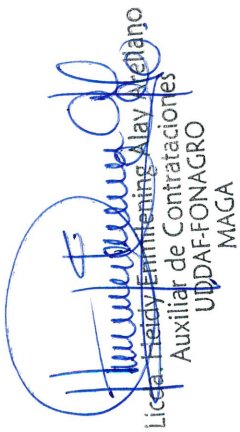 Licda. Heidy Emmening Alay Arellano
Auxiliar de Contrataciones
UDDAF-FONAGRO
MAGA